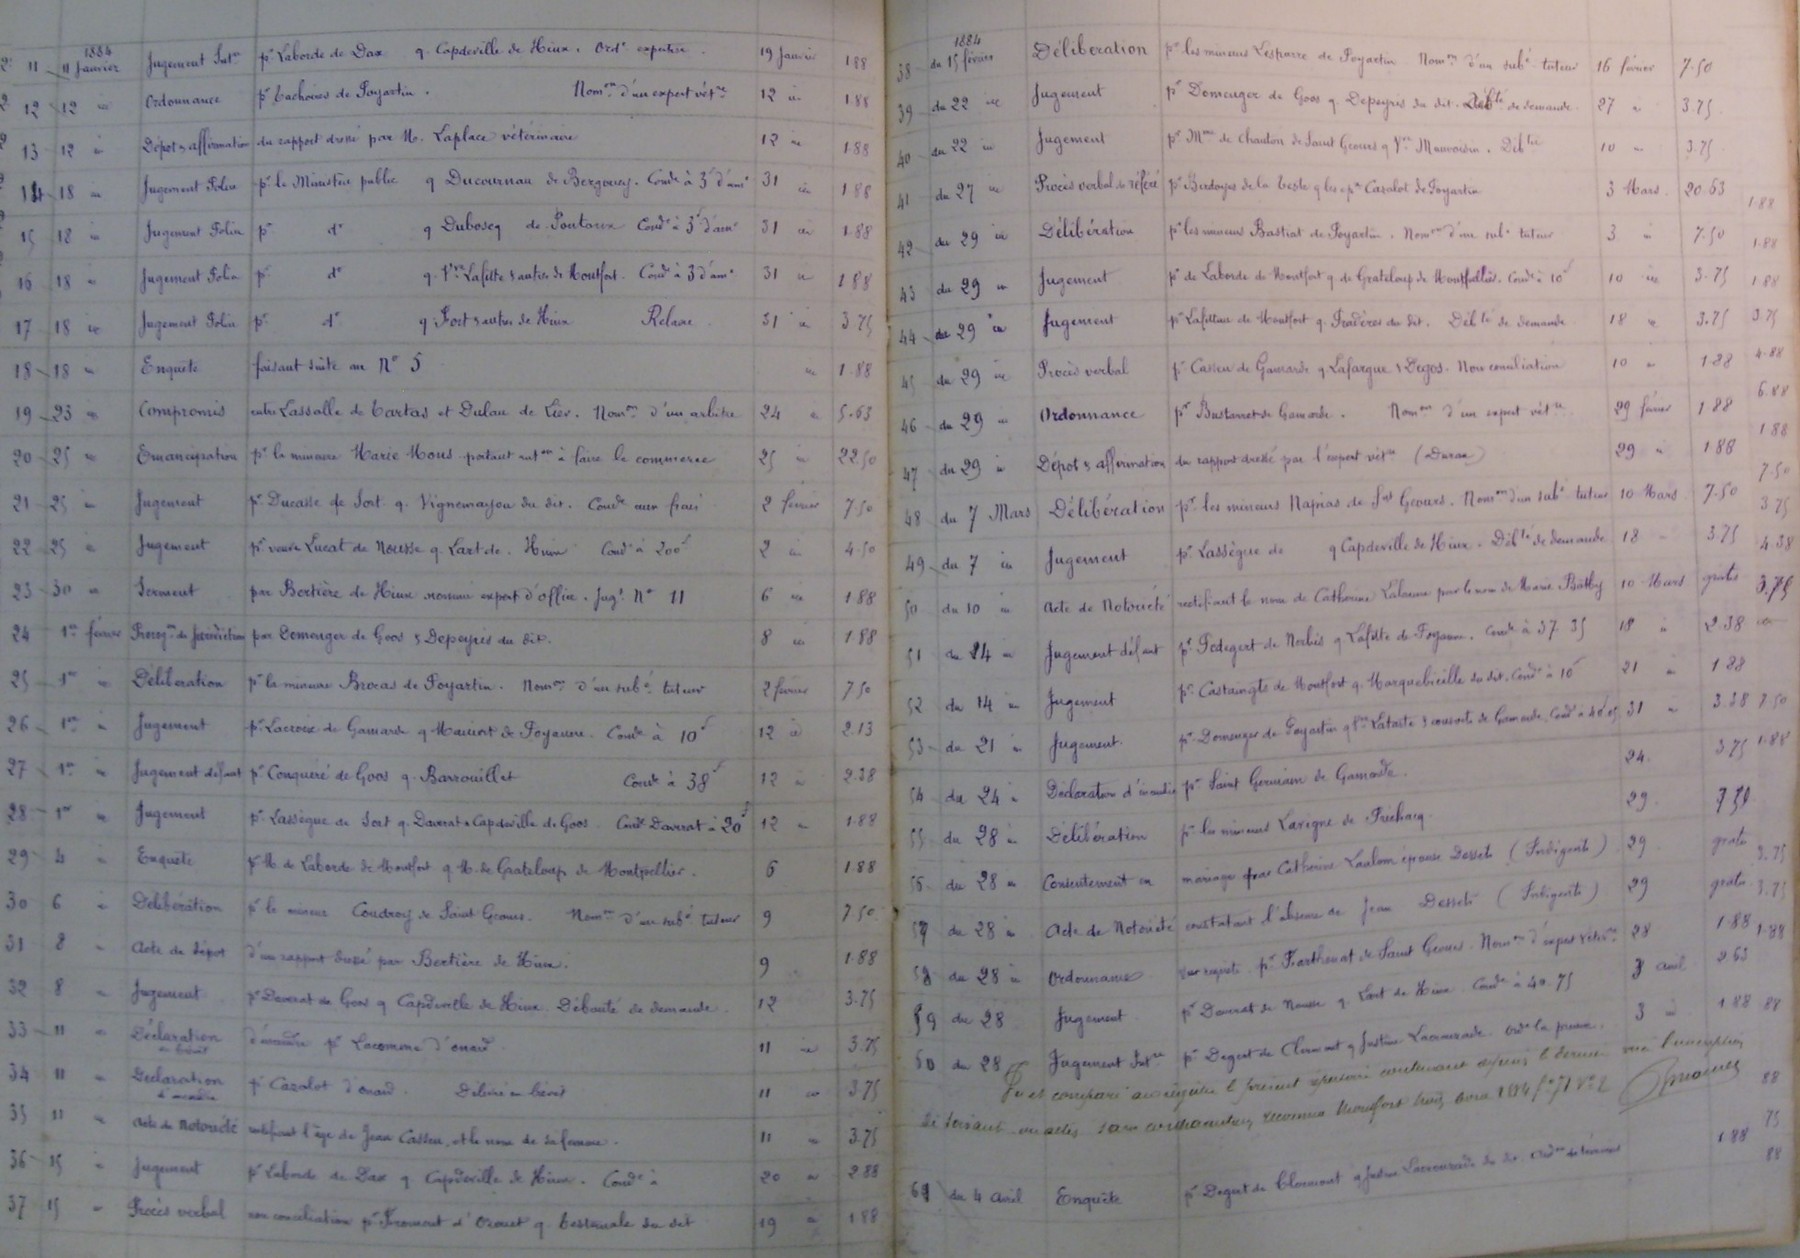 1884
11 11 Janvier Jugement Int^re p^r Laborde de Dax q. Capdeville de Hinx. Ord^t expertise. 19 Janvier 1.88
12 12 id Ordonnance p^r de Poyartin. Nom^on d'un expert vét^re 12 id 1.88
13 12 id Dépôt & affirmation du rapport dressé par M. Laplace vétérinaire 12 id 1.88
14 18 id Jugement Police p^r le Ministère public q Ducournau de Bergouey. Cond^é à 3^f d'am^e 31 id 1.88
15 18 id Jugement Police p^r d^o q Duboscq de Pontonx Cond^é à 3^f d'am^e 31 id 1.88
16 18 id Jugement Police p^r d^o q. V^ve Lafitte & autres de Montfort. Cond^é à 3^f d'am^e 31 id 1.88
17 18 id Jugement Police p^r d^o q Fort & autres de Hinx Relaxe 31 id 3.75
18 18 id Enquête faisant suite au N° 5 id 1.88
19 23 id Compromis entre Lassalle de Tartas et Dulau de Lier. Nom^on d'un arbitre 24 id 5.63
20 25 id Emancipation p^r la mineure Marie Mous portant aut^on à faire le commerce 25 id 22.50
21 25 id Jugement p^r Ducasse de Sort q. Vignemayou du dit. Cond^é aux frais 2 février 7.50
22 25 id Jugement p^r veuve Lucat de Nousse q. Lart de Hinx Cond^é à 200^f 2 id 4.50
23 30 id Serment par Bertière de Hinx nommé expert d'office. Jug^t N° 11 6 id 1.88
24 1^er février Prorog^on de Juridiction par Domenger de Goos & Depeyris du dit. 8 id 1.88
25 1^er id Délibération p^r la mineure Brocas de Poyartin. Nom^on d'un sub^é tuteur 2 février 7.50
26 1^er id Jugement p^r Lacroix de Gamarde q de Poyanne. Cond^é à 10^f 12 id 2.13
27 1^er id Jugement défaut p^r Conquéré de Goos q. Barrouillet Cond^é à 38^f 12 id 2.38
28 1^er id Jugement p^r Lassègue de Sort q. Daverat & Capdeville de Goos. Cond^é Daverat à 20^f 12 id 1.88
29 4 id Enquête p^r M. de Laborde de Montfort q M. de Grateloup de Montpellier. 6 1.88
30 6 id Délibération p^r le mineur Coudroy de Saint Geours. Nom^on d'un sub^é tuteur 9 7.50
31 8 id Acte de dépôt d'un rapport dressé par Bertière de Hinx. 9 1.88
32 8 id Jugement p^r Daverat de Goos q Capdeville de Hinx. Débouté de demande. 12 3.75
33 11 id Déclaration en brevet p^r Lacomme d'onard 11 id 3.75
34 11 id Déclaration p^r Cazalot d'onard. Délivré en brevet 11 id 3.75
35 11 id Acte de Notoriété rectifiant l'âge de Jean Cassen, et le nom de sa femme. 11 id 3.75
36 15 id Jugement p^r Laborde de Dax q Capdeville de Hinx. Cond^é à 20 id 2.88
37 15 id Procès verbal non conciliation p^r Fromont d' q. du dit 19 id 1.88
1884
38 du 15 février Délibération p^r les mineurs Lesparre de Poyartin Nom^on d'un sub^é tuteur 16 février 7.50
39 du 22 id Jugement p^r Domenger de Goos q. Depeyris du dit. Déb^té de demande 27 id 3.75
40 du 22 id Jugement p^r M^me de Chauton de Saint Geours q V^ve Mauvoisin. Déb^tée 10 id 3.75
41 du 27 id Procès verbal de référé p^r Birdoyes de la Teste q les ép^x Cazalot de Poyartin 3 Mars. 20.63
1.88
42 du 29 id Délibération p^r les mineurs Bastiat de Poyartin. Nom^on d'un sub^é tuteur 3 id 7.50
1.88
43 du 29 id Jugement p^r de Laborde de Montfort q. de Grateloup de Montpellier. Cond^é à 10^f 10 id 3.75
1.88
44 du 29 id Jugement p^r Lafittau de Montfort q. Pradères du dit. Déb^té de demande 18 id 3.75
3.75
45 du 29 id Procès verbal p^r Cassen de Gamarde q Lafargue & Degos. Non conciliation 10 id 1.88
4.88
46 du 29 id Ordonnance p^r Bustarret de Gamarde. Nom^on d'un expert vét^re 29 février 1.88
6.88
1.88
47 du 29 id Dépôt & affirmation du rapport dressé par l'expert vét^re (Duran) 29 id 1.88
7.50
48 du 7 Mars Délibération p^r les mineurs Napias de S^nt Geours. Nom^on d'un sub^é tuteur 10 Mars 7.50
3.75
49 du 7 id Jugement p^r Lassègue de q Capdeville de Hinx. Déb^té de demande 18 3.75
4.38
50 du 10 id Acte de Notoriété rectifiant le nom de Catherine Lalanne pour le nom de Marie 10 Mars gratis
3.75
51 du 14 id Jugement défaut p^r Pédegert de Nerbis q Lafitte de Poyanne. Cond^é à 37.35 18 id 2.38
52 du 14 id Jugement p^r Castaingts de Montfort q. Marquebieille du dit. Cond^é à 10^f 21 id 1.88
53 du 21 id Jugement. p^r Domenger de Poyartin q V^ve Lataste & consorts de Gamarde. Cond^é à 31 id 3.38
7.50
54 du 24 id Déclaration d' p^r Saint Germain de Gamarde. 24. 3.75
1.88
55 du 28 id Délibération p^r les mineurs Lavigne de Préchacq. 29. 7.50
56 du 28 id Consentement au mariage par Catherine Laalom épouse Dessets (Indigents) 29 gratis
3.75
57 du 28 id Acte de Notoriété constatant l'absence de Jean Dessets (Indigents) 29 gratis
3.75
58 du 28 id Ordonnance sur requête p^r Farthouat de Saint Geours. Nom^on d'expert vétér^re 28 1.88
1.88
59 du 28 Jugement p^r Daverat de Nousse q. Lart de Hinx Cond^é à 40.75 3 avril 2.63
60 du 28 Jugement Int^re p^r Degert de Clermont q Justine Lacouzade. Ord^e la preuve. 3 id 1.88
88
Vu et comparé au registre le présent répertoire contenant depuis le dernier visa l'inscription
de soixante un actes sans contravention reconnue Montfort trois avril 1884 f° 71 V° C 2
88
75
61 du 4 avril Enquête p^r Degert de Clermont q Justine Lacouzade du dit. 1.88
88